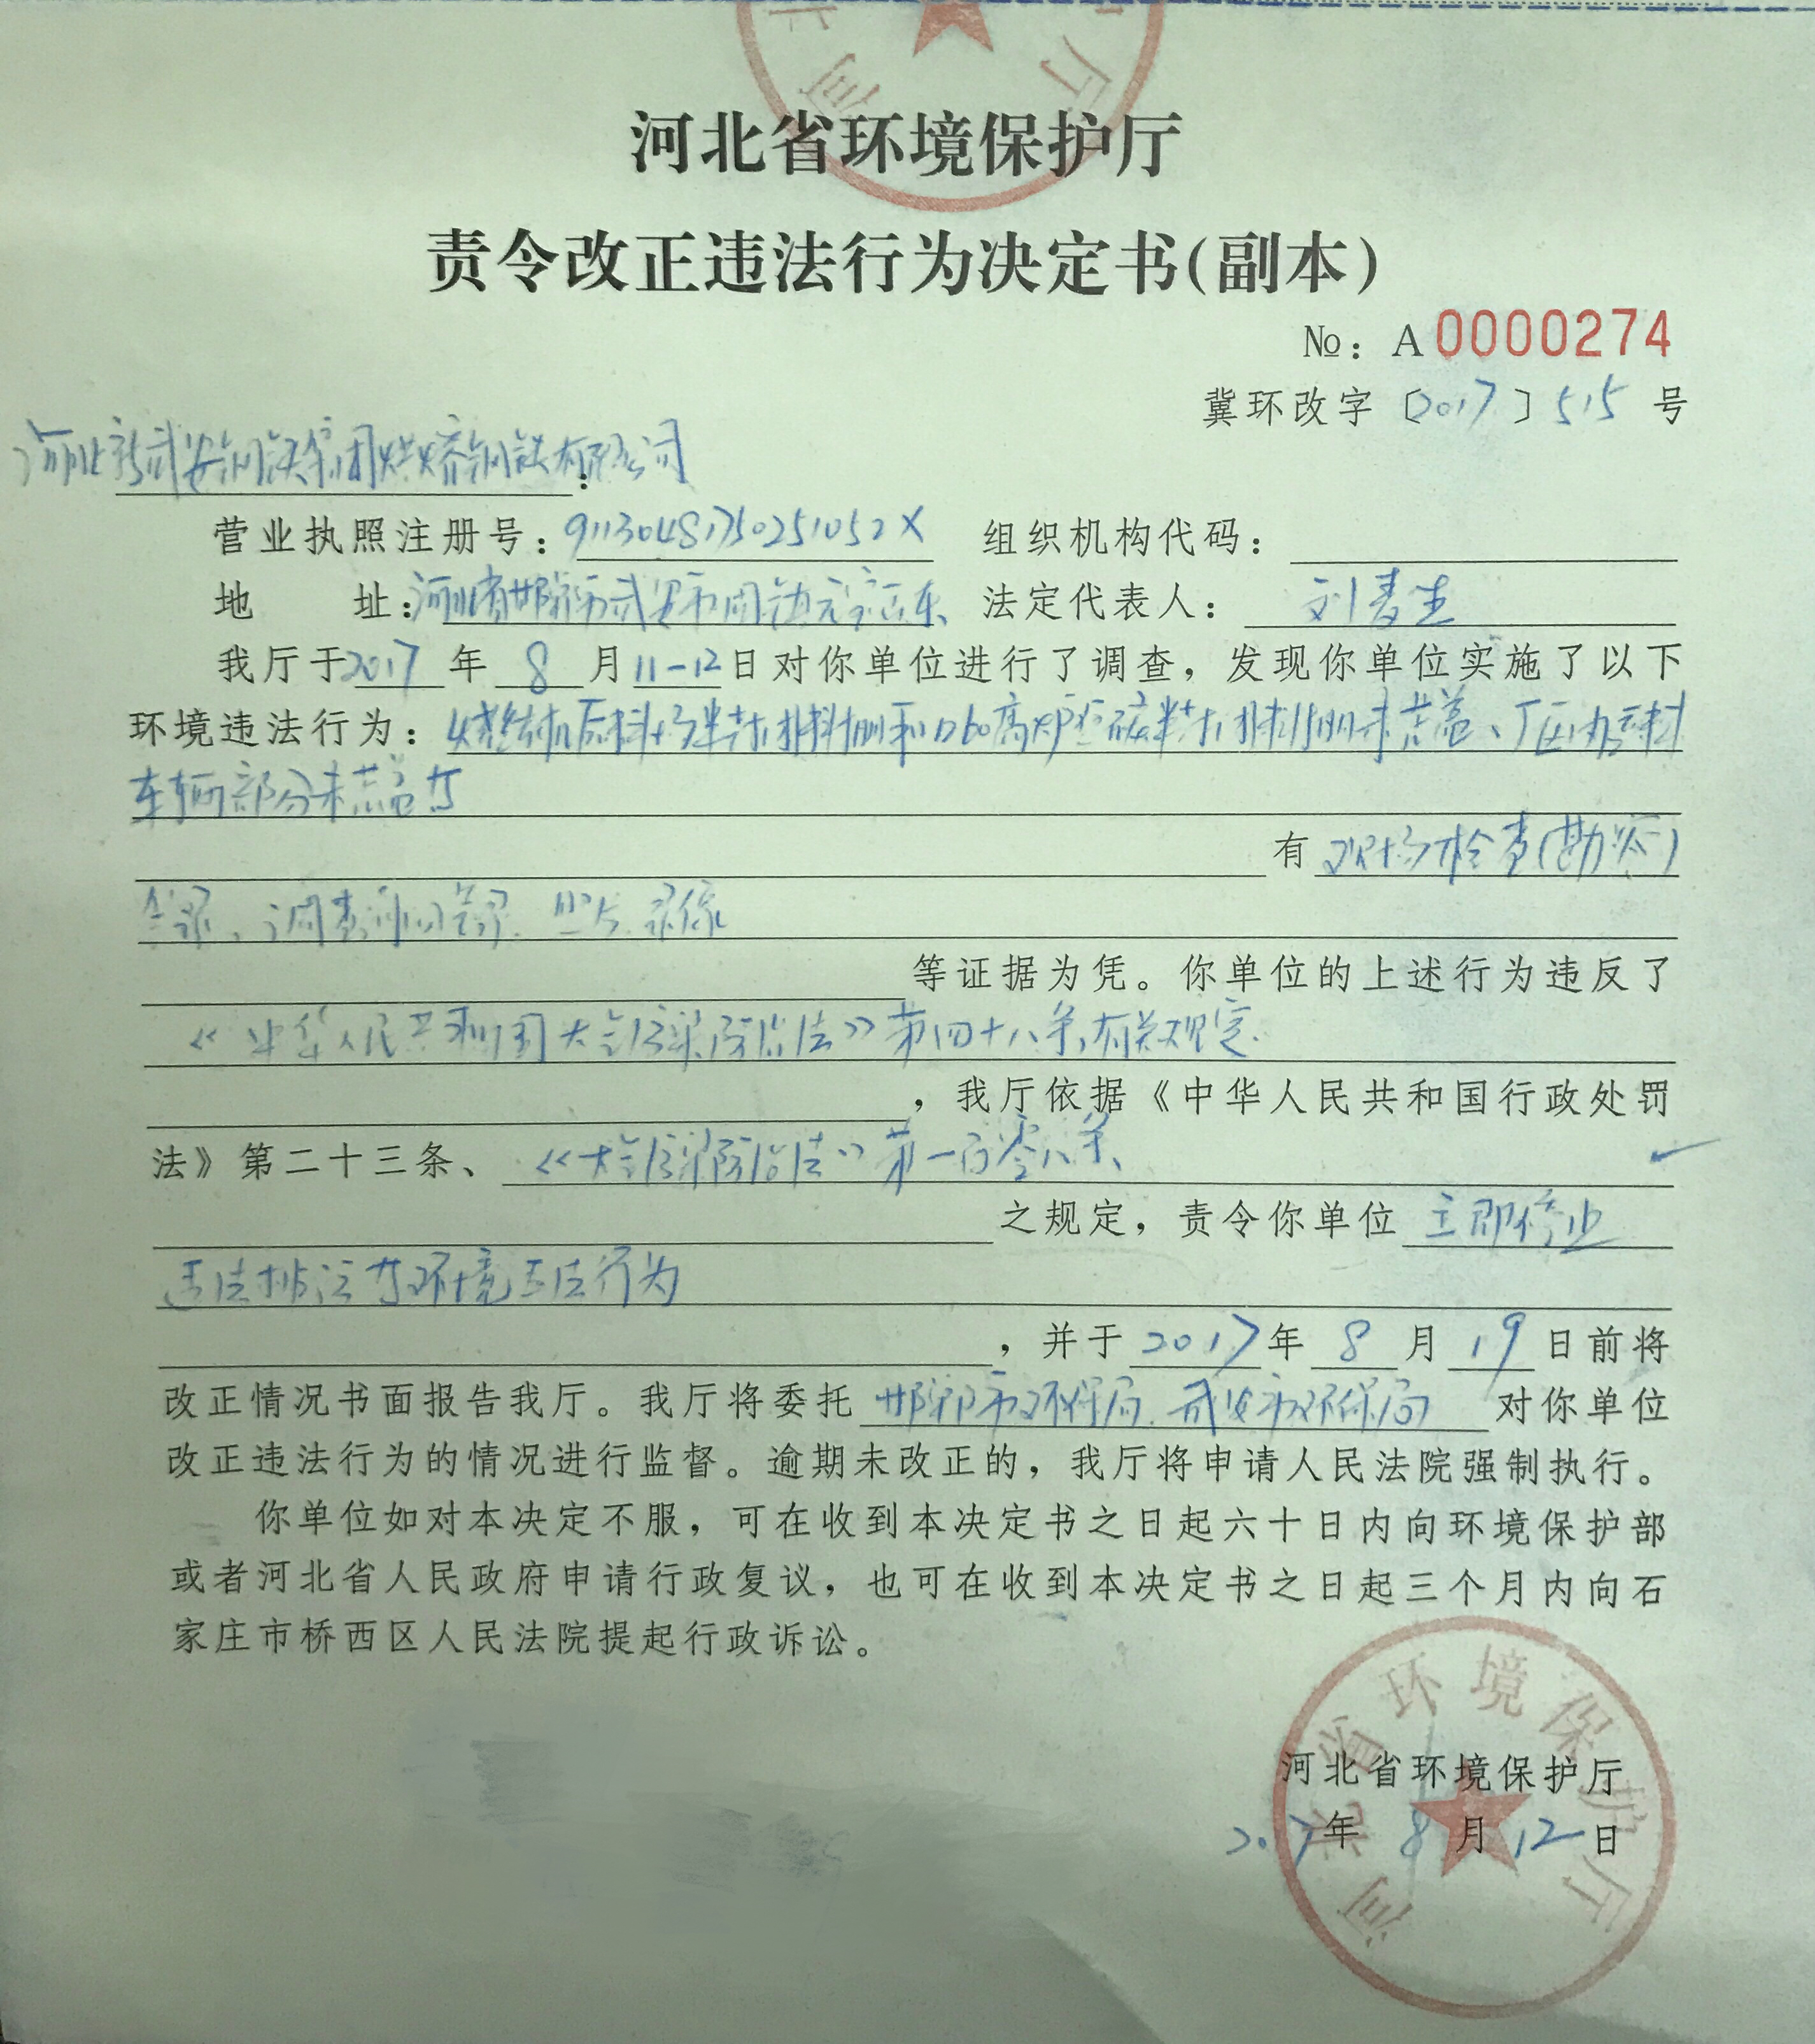 河北省环境保护厅
责令改正违法行为决定书(副本)
№：A0000274
冀环改字〔2017〕515号
河北新武安钢铁集团烘熔钢铁有限公司：
营业执照注册号：91130481750251052X 组织机构代码：
地 址：河北省邯郸市武安市 法定代表人：刘春生
我厅于2017年8月11-12日对你单位进行了调查，发现你单位实施了以下
环境违法行为：烧结机原料场 高炉 未苫盖、厂区
车辆部分未苫盖等
有现场检查(勘察)
笔录、调查询问笔录、照片、录像
等证据为凭。你单位的上述行为违反了
《中华人民共和国大气污染防治法》第四十八条有关规定.
，我厅依据《中华人民共和国行政处罚
法》第二十三条、《大气污染防治法》第一百零八条、
之规定，责令你单位立即停止
违法排污等环境违法行为
，并于2017年8月19日前将
改正情况书面报告我厅。我厅将委托邯郸市环保局、武安市环保局对你单位
改正违法行为的情况进行监督。逾期未改正的，我厅将申请人民法院强制执行。
你单位如对本决定不服，可在收到本决定书之日起六十日内向环境保护部
或者河北省人民政府申请行政复议，也可在收到本决定书之日起三个月内向石
家庄市桥西区人民法院提起行政诉讼。
河北省环境保护厅
河北省环境保护厅
2017年8月12日